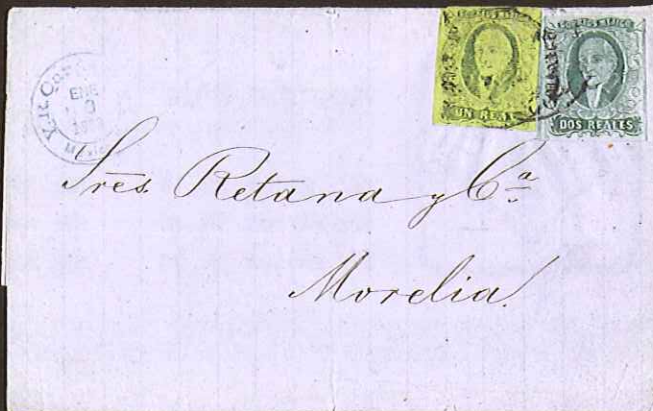 CORREOS MEXICO
UN REAL
CORREOS MEXICO
DOS REALES
ENE
Sres. Retana y Cª
Morelia.